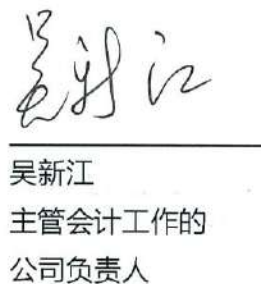 吴新江
吴新江
主管会计工作的
公司负责人